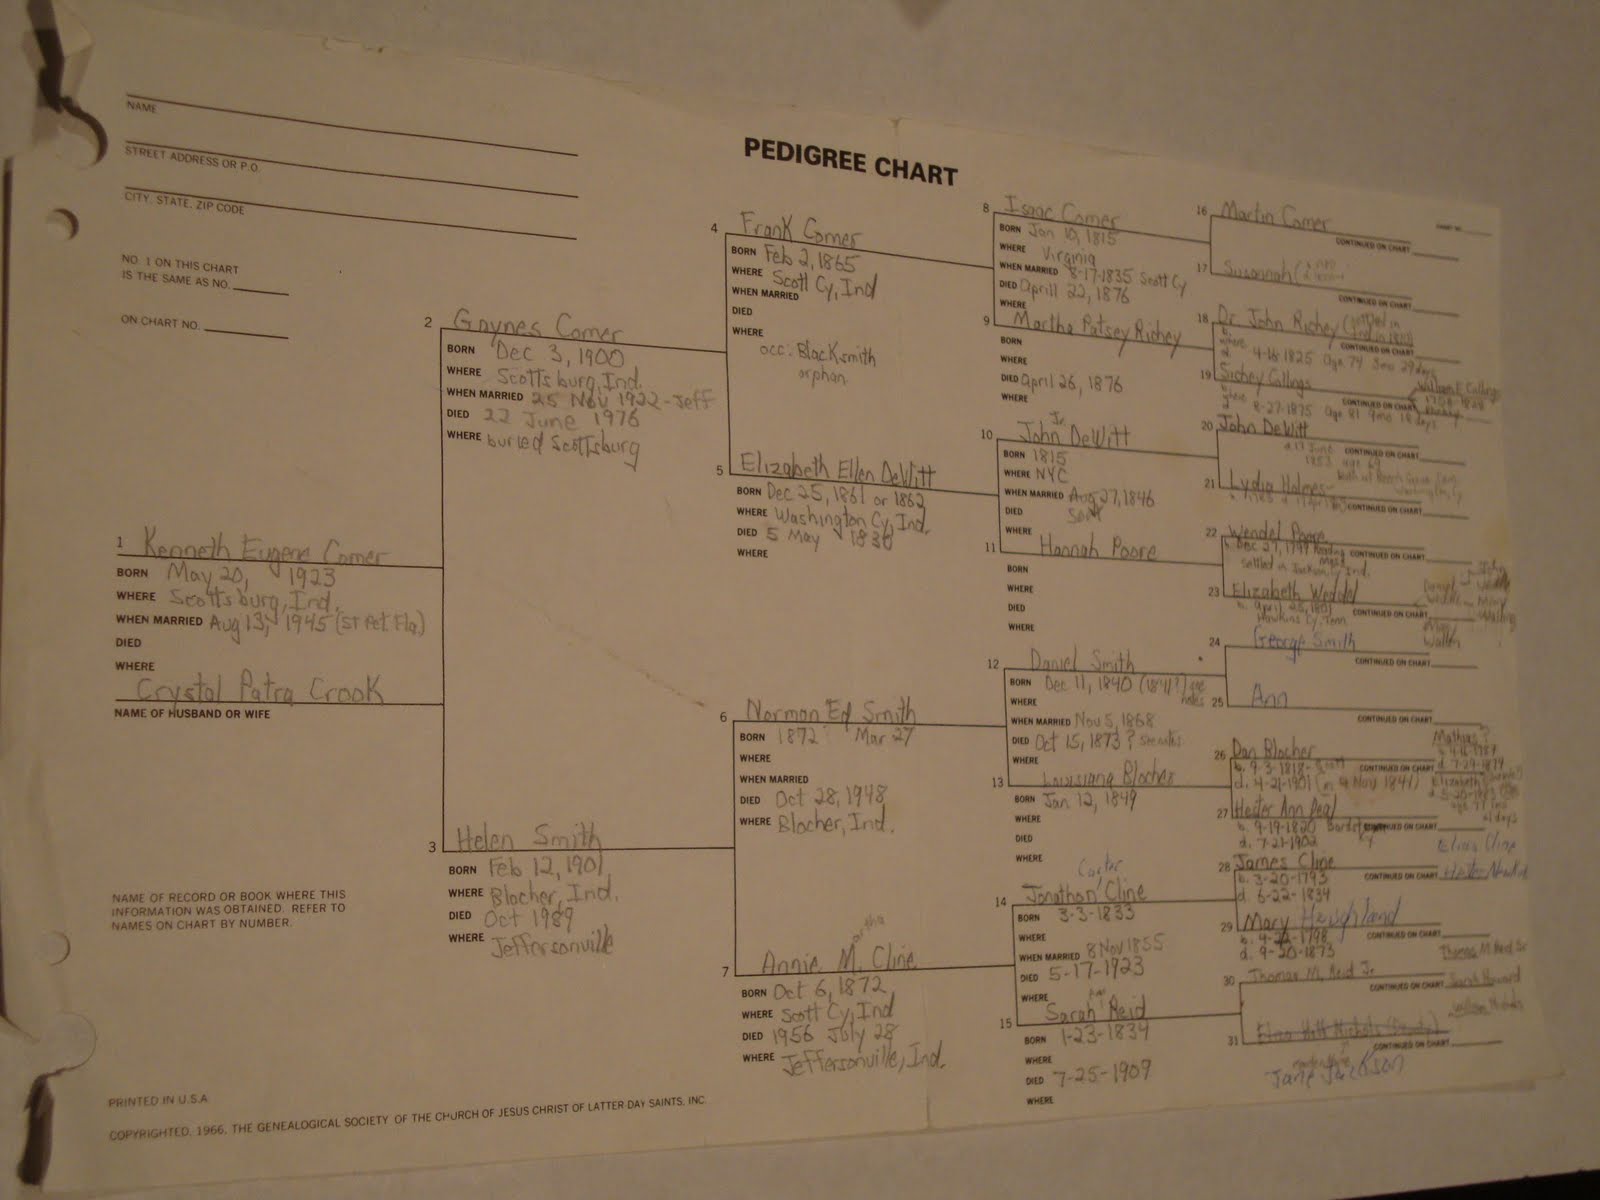 PEDIGREE CHART
NAME
STREET ADDRESS OR P.O.
CITY, STATE, ZIP CODE
NO. 1 ON THIS CHART
IS THE SAME AS NO.
ON CHART NO.
1 Kenneth Eugene Comer
BORN May 20, 1923
WHERE Scottsburg, Ind.
WHEN MARRIED Aug 13, 1945 (St Pet. Fla.)
DIED
WHERE
Crystal Patra Crook
NAME OF HUSBAND OR WIFE
NAME OF RECORD OR BOOK WHERE THIS
INFORMATION WAS OBTAINED. REFER TO
NAMES ON CHART BY NUMBER.
PRINTED IN U.S.A.
COPYRIGHTED, 1966, THE GENEALOGICAL SOCIETY OF THE CHURCH OF JESUS CHRIST OF LATTER DAY SAINTS, INC.
2 Gaynes Comer
BORN Dec 3, 1900
WHERE Scottsburg, Ind.
WHEN MARRIED 25 Nov 1922 - Jeff
DIED 22 June 1976
WHERE buried Scottsburg
3 Helen Smith
BORN Feb 12, 1901
WHERE Blocher, Ind.
DIED Oct 1989
WHERE Jeffersonville
4 Frank Comer
BORN Feb 2, 1865
WHERE Scott Cy, Ind
WHEN MARRIED
DIED
WHERE
occ: Blacksmith
orphan
5 Elizabeth Ellen DeWitt
BORN Dec 25, 1861 or 1862
WHERE Washington Cy, Ind.
DIED 5 May
WHERE
6 Norman Ed Smith
BORN 1872 Mar 27
WHERE
WHEN MARRIED
DIED Oct 28, 1948
WHERE Blocher, Ind.
7 Annie M. Cline
artha
BORN Oct 6, 1872
WHERE Scott Cy, Ind
DIED 1956 July 28
WHERE Jeffersonville, Ind.
8 Isaac Comer
BORN Jan 10, 1815
WHERE Virginia
WHEN MARRIED 8-17-1835 Scott Cy
DIED Aprill 22, 1876
WHERE
9 Martha Patsey Richey
BORN
WHERE
DIED April 26, 1876
WHERE
Jr.
10 John DeWitt
BORN 1815
WHERE NYC
WHEN MARRIED Aug 27, 1846
Scott
DIED
WHERE
11 Hannah Poore
BORN
WHERE
DIED
WHERE
12 Daniel Smith
BORN Dec 11, 1840 (1841?) see notes
WHERE
WHEN MARRIED Nov 5, 1868
DIED Oct 15, 1873? see notes
WHERE
13 Louisiana Blocher
BORN Jan 12, 1849
WHERE
DIED
WHERE
Carter
14 Jonathon Cline
BORN 3-3-1833
WHERE
WHEN MARRIED 8 Nov 1855
DIED 5-17-1923
WHERE
15 Sarah Reid
BORN 1-23-1834
WHERE
DIED 7-25-1909
WHERE
16 Martin Comer
CONTINUED ON CHART
17 Susannah
CONTINUED ON CHART
18 Dr. John Richey (settled in
CONTINUED ON CHART
d. 4-18-1825 age 74
19
CONTINUED ON CHART
8-27-1875 age 81 9mo 18 days
20 John DeWitt
CONTINUED ON CHART
21 Lydia Holmes
CONTINUED ON CHART
22 Wendel Poore
CONTINUED ON CHART
settled in Jackson Cy Ind.
23 Elizabeth Weddel
b. April 25, 1801
CONTINUED ON CHART
Hawkins Cy, Tenn
24 George Smith
CONTINUED ON CHART
25 Ann
CONTINUED ON CHART
26 Dan Blocher
b. 9-3-1818 - Scott
CONTINUED ON CHART
d. 4-21-1901 (m 4 Nov 1841)
27 Hester Ann Deal
b. 9-19-1820
CONTINUED ON CHART
d. 7-21-1902
28 James Cline
b. 3-20-1793
CONTINUED ON CHART
d. 6-22-1834
29 Mary
CONTINUED ON CHART
d. 9-20-1873
30 Thomas M. Reid Jr.
CONTINUED ON CHART
31
CONTINUED ON CHART
Jane Jackson
Thomas M. Reid Sr
Sarah Howard
William Nichols